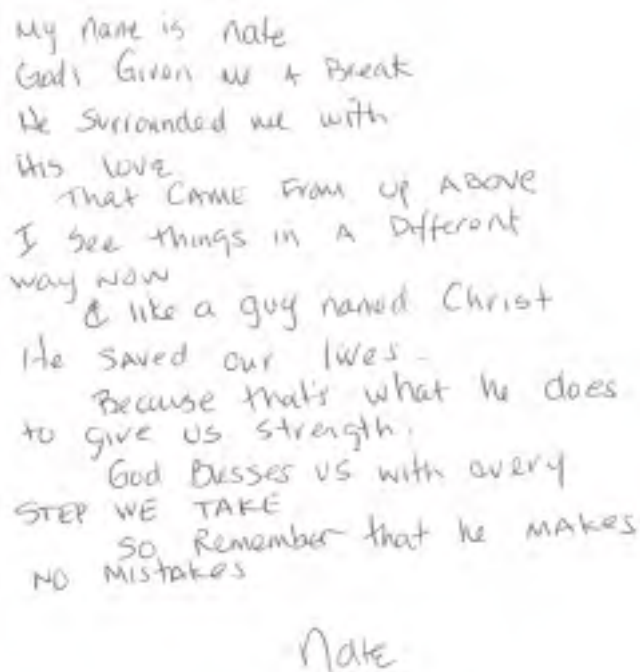 My name is nate
Gods Given me A Break
He Surrounded me with
His love
That CAME From up ABOVE
I See things in A Different
way NOW
& like a guy named Christ
He SAVED our lives.
Because that's what he does
to give us strength.
God Blesses us with every
STEP WE TAKE
SO Remember that he MAKES
NO MISTAKES
Nate